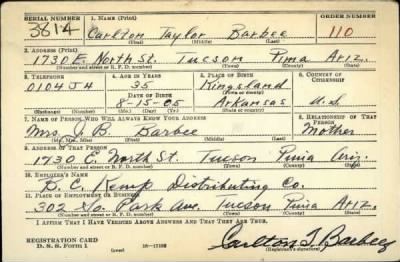 SERIAL NUMBER 1. NAME (Print) ORDER NUMBER
3814 Carlton Taylor Barbee 110
(First) (Middle) (Last)
2. ADDRESS (Print)
1730 E. North St. Tucson Pima Ariz.
(Number and street or R. F. D. number) (Town) (County) (State)
3. TELEPHONE 4. AGE IN YEARS 5. PLACE OF BIRTH 6. COUNTRY OF CITIZENSHIP
0104J4 35 Kingsland
DATE OF BIRTH (Town or county)
8-15-05 Arkansas U.S.
(Exchange) (Number) (Mo.) (Day) (Yr.) (State or country)
7. NAME OF PERSON WHO WILL ALWAYS KNOW YOUR ADDRESS 8. RELATIONSHIP OF THAT PERSON
Mrs. B. Barbee Mother
(Mr., Mrs., Miss) (First) (Middle) (Last)
9. ADDRESS OF THAT PERSON
1730 E. North St. Tucson Pima Ariz.
(Number and street or R. F. D. number) (Town) (County) (State)
10. EMPLOYER'S NAME
B. C. Kemp Distributing Co.
11. PLACE OF EMPLOYMENT OR BUSINESS
302 So. Park Ave. Tucson Pima Ariz.
(Number and street or R. F. D. number) (Town) (County) (State)
I AFFIRM THAT I HAVE VERIFIED ABOVE ANSWERS AND THAT THEY ARE TRUE.
REGISTRATION CARD
D. S. S. Form 1 (over) Carlton T. Barbee
(Registrant's signature)